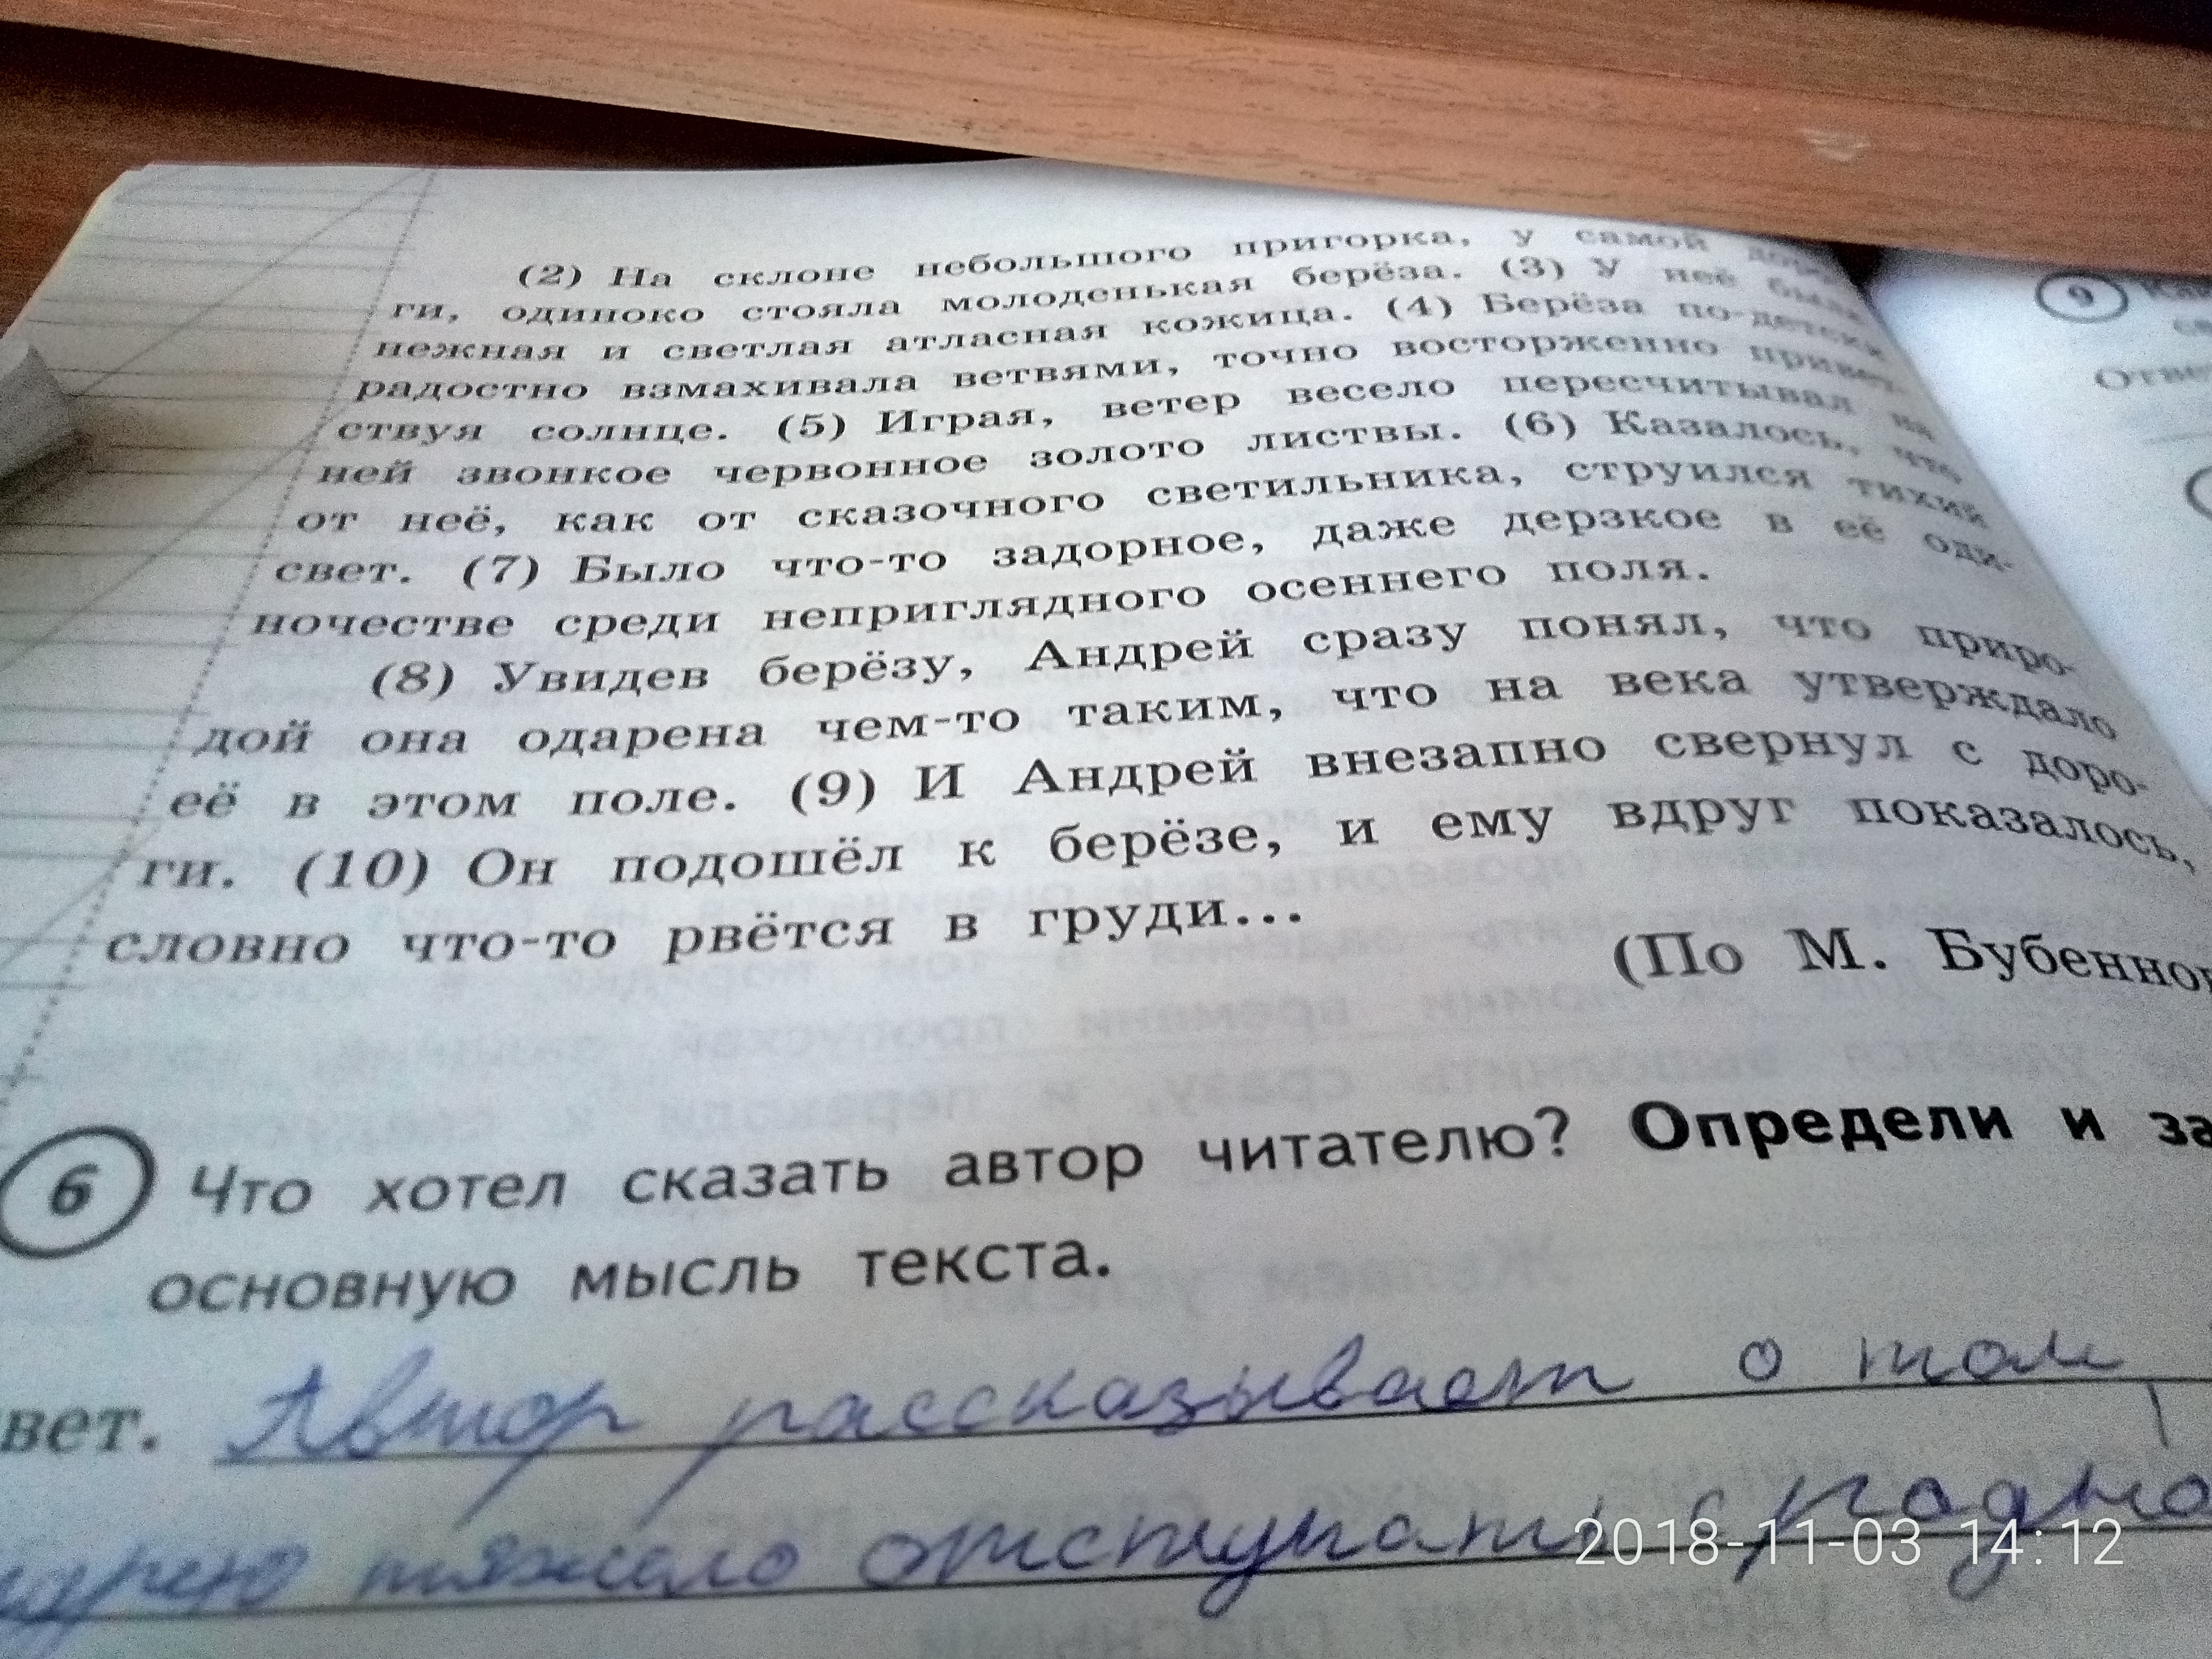 (2) На склоне небольшого пригорка, у самой доро-
ги, одиноко стояла молоденькая берёза. (3) У неё была
нежная и светлая атласная кожица. (4) Берёза по-детски
радостно взмахивала ветвями, точно восторженно привет-
ствуя солнце. (5) Играя, ветер весело пересчитывал на
ней звонкое червонное золото листвы. (6) Казалось, что
от неё, как от сказочного светильника, струился тихий
свет. (7) Было что-то задорное, даже дерзкое в её оди-
ночестве среди неприглядного осеннего поля.
(8) Увидев берёзу, Андрей сразу понял, что приро-
дой она одарена чем-то таким, что на века утверждало
её в этом поле. (9) И Андрей внезапно свернул с доро-
ги. (10) Он подошёл к берёзе, и ему вдруг показалось,
словно что-то рвётся в груди...
(По М. Бубеннов
6 Что хотел сказать автор читателю? Определи и за
основную мысль текста.
вет. Автор рассказывает о том,
дрею тяжело отступать с родно
9
Отве
2018-11-03 14:12